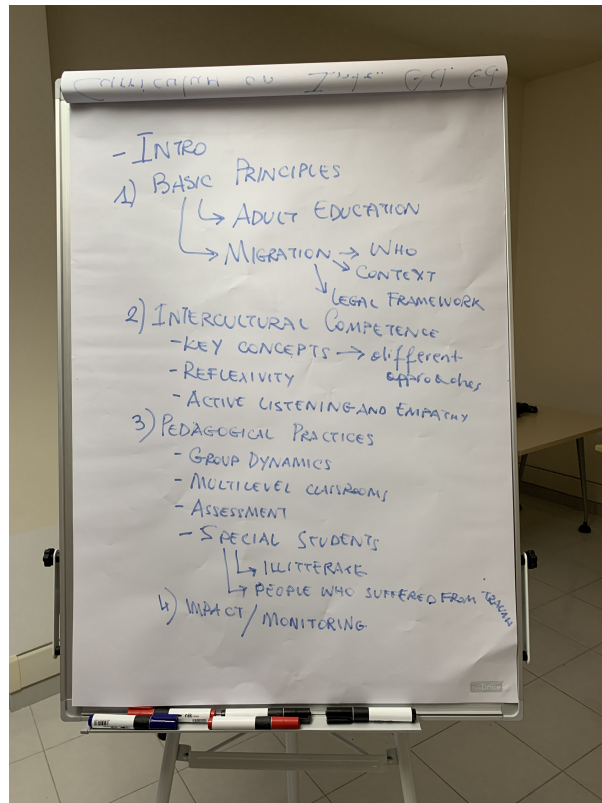 - INTRO
1) BASIC PRINCIPLES
↳ ADULT EDUCATION
↳ MIGRATION → WHO
↘ CONTEXT
↘ LEGAL FRAMEWORK
2) INTERCULTURAL COMPETENCE
- KEY CONCEPTS → different
approaches
- REFLEXIVITY
- ACTIVE LISTENING AND EMPATHY
3) PEDAGOGICAL PRACTICES
- GROUP DYNAMICS
- MULTILEVEL CLASSROOMS
- ASSESSMENT
- SPECIAL STUDENTS
↳ ILLITTERATE
↳ PEOPLE WHO SUFFERED FROM TRAUMA
4) IMPACT / MONITORING